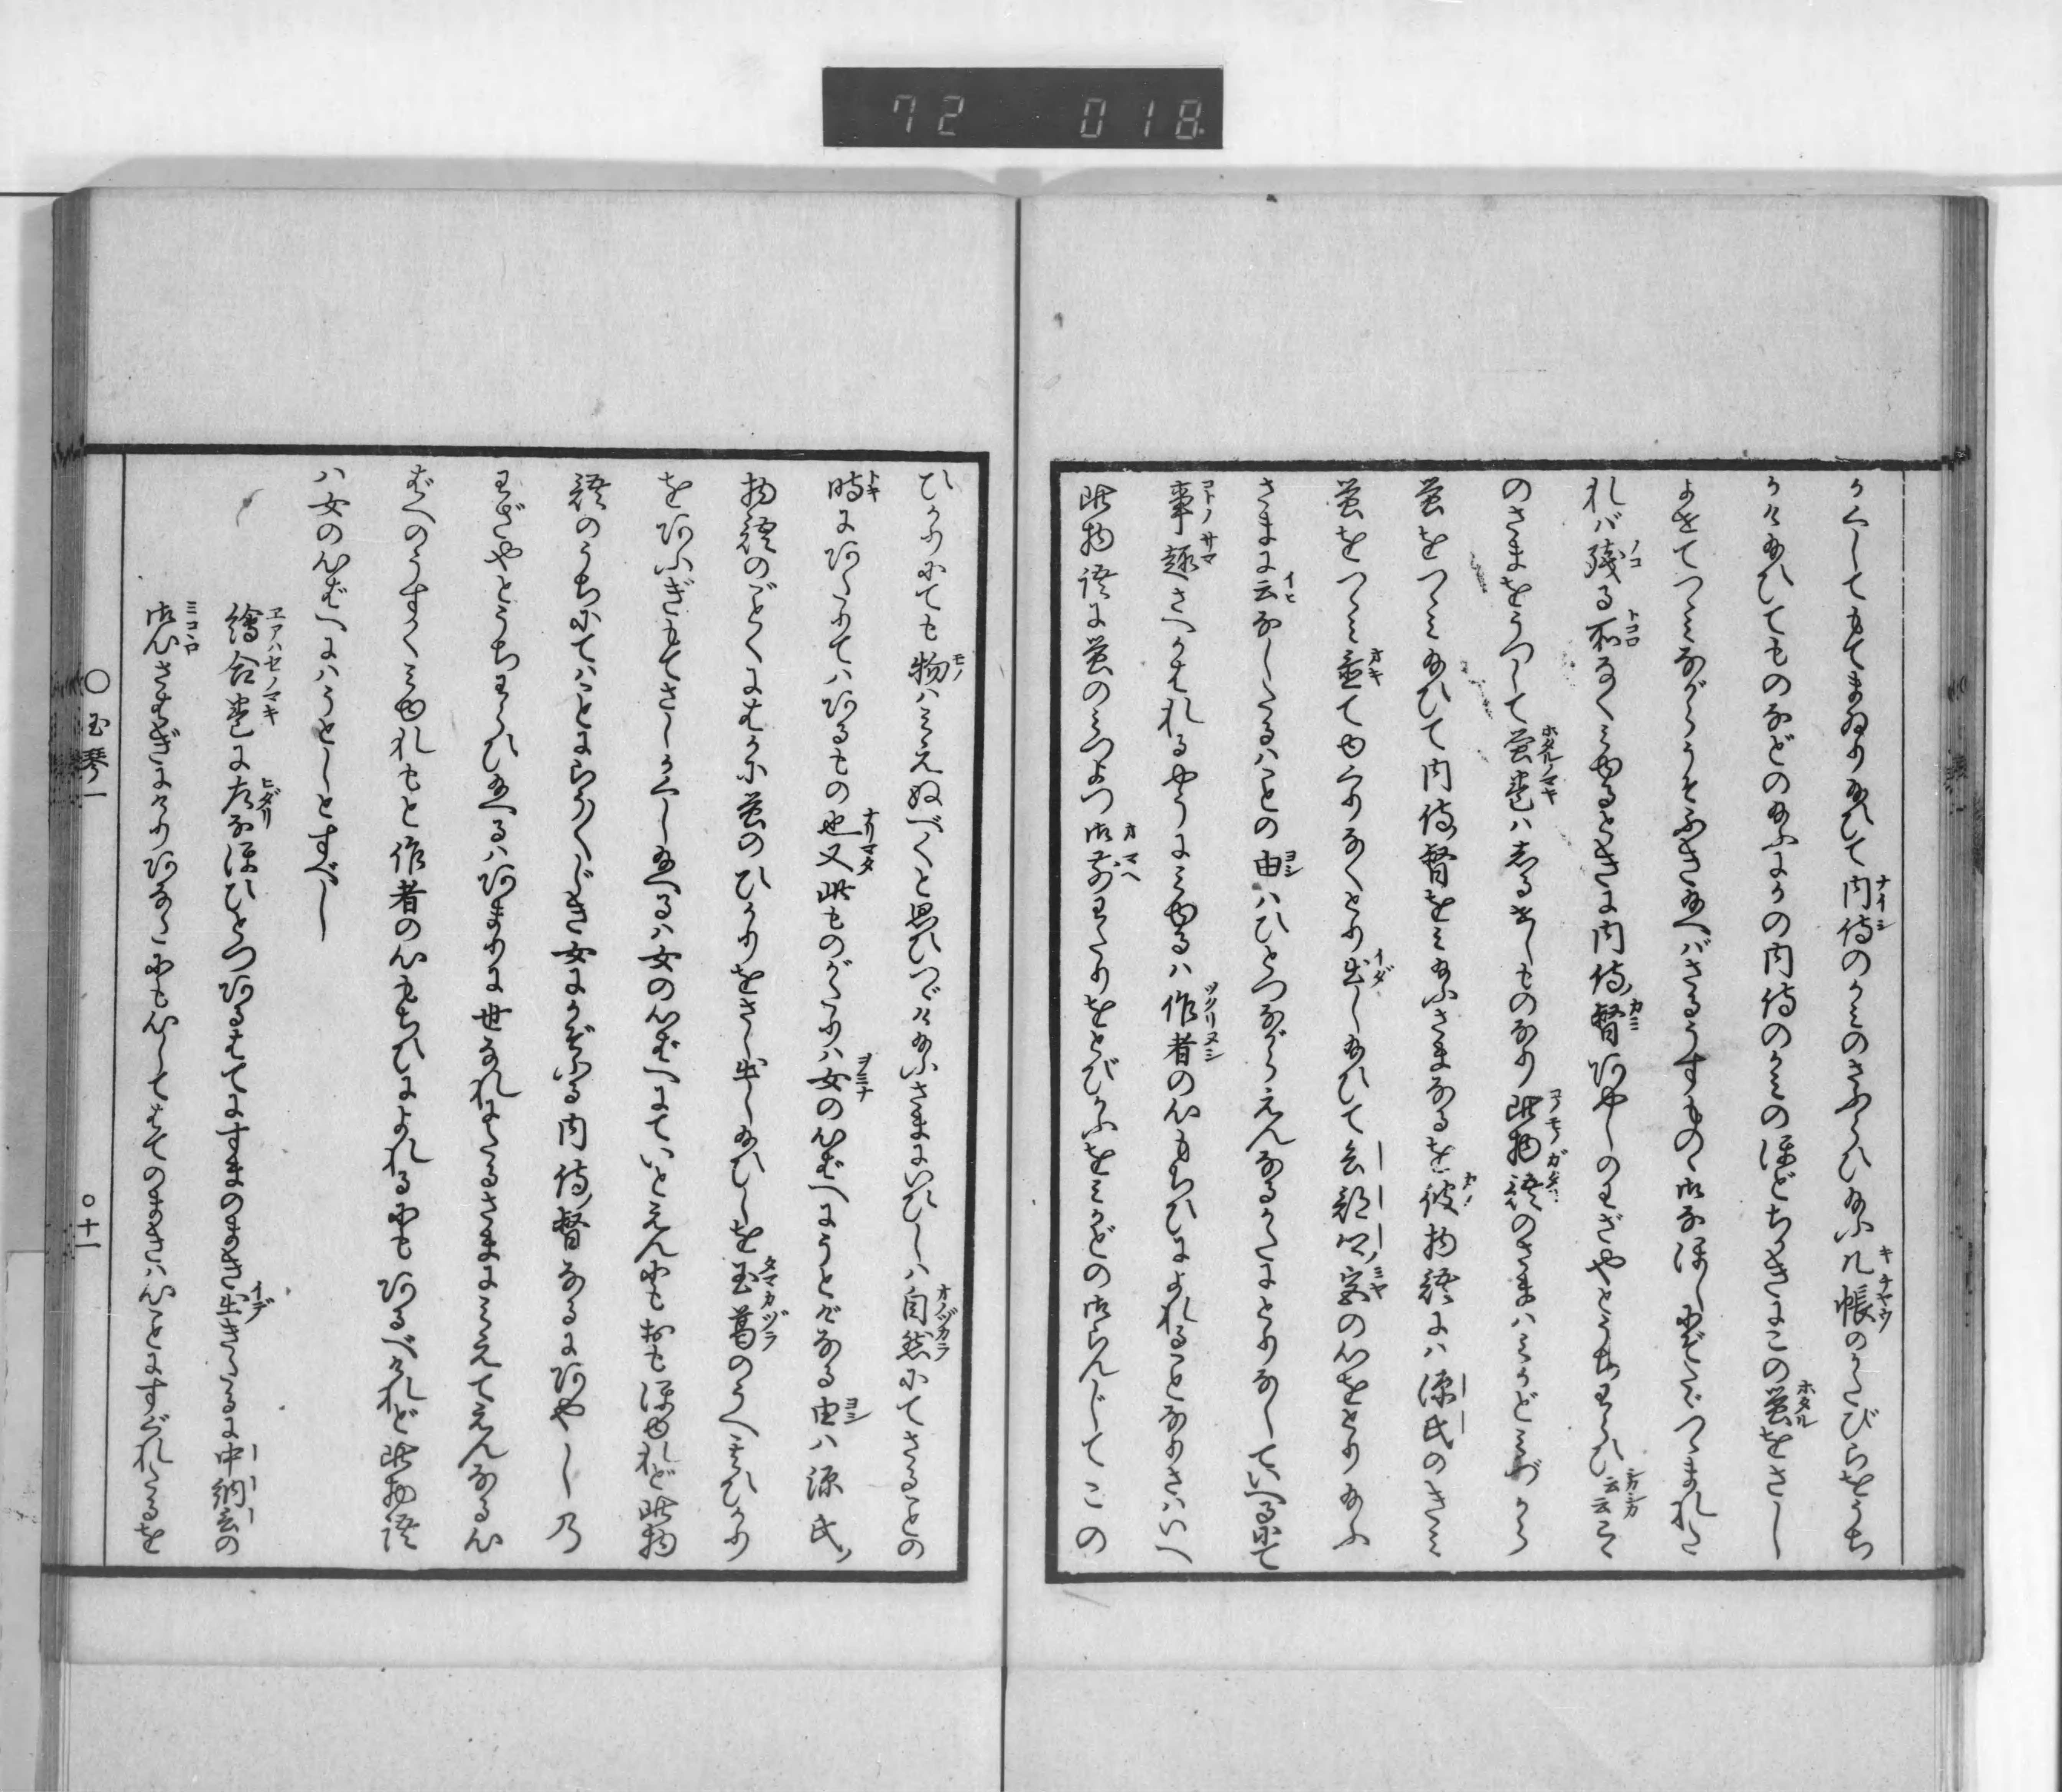 72 018
かくしてもてまゐり給ひて内侍のかみのさふらひ給ふ几帳のかたびらをうち
かけ給ひてものなどの給ふにかの内侍のかみのほどちかきにこの螢をさし
よせてつゝみながらうそふき給へばさるうすものゝ御なほしにぞたゞつゝまれた
れバ残る所なくみゆるときに内侍督あやしのわざやとうちわらひ云云こゝ
のさまをうつして螢巻ハ志るせしものなり此物語のさまハみかどみづから
螢をつゝみ給ひて内侍督をみ給ふさまなるを彼物語にハ源氏のきミ
螢をつゝミ置てゆくりなくとり出し給ひて兵部卿ノ宮の心をとり給ふ
さまに云なしたるハことの由ハひとつながらえんなるかたにとりなしていへるにて
事趣さへかはれるやうにみゆるハ作者の心もちひによれることなりさハいへ
此物語に螢のみつよつ御前わたりをとびかふをみかどの御らんじてこの
ひかりにても物ハミえぬべくと思ひつゞけ給ふさまにいひしハ自然にてさることの
時にあたりてハあるもの也又此ものがたりハ女の心ばへにうとげなる由ハ源氏ノ
物語のごとくにはかに螢のひかりをさし出し給ひしを玉葛のうへミひかり
をあふぎもてさしかくし給へるハ女の心ばへにていとえんにもおもほゆれど此物
語のうちにてハことにらうらうじき女にかぞふる内侍督なるにあやしの
わざやとうちわらひ給へるハあまりに世なれたるさまにみえてえんなる心
ばへのうすくミゆれもと作者の心もちひによれるにもあるべけれど此物語
ハ女の心ばへにハうとしとすべし
繪合巻に左なほひとつあるはてにすまのまき出きたるに中納言の
御心さわぎにけりあなたにも心してはてのまきハ心ことにすぐれたるを
○玉琴一
○十一